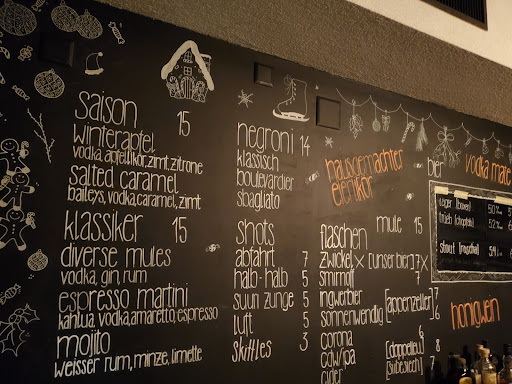 saison 15
winterapfel
vodka, apfellikör, zimt, zitrone
salted caramel
baileys, vodka, caramel, zimt
klassiker 15
diverse mules
vodka, gin, rum
espresso martini
kahlua, vodka, amaretto, espresso
mojito
weisser rum, minze, limette
negroni 14
klassisch
boulevardier
sbagliato
shots
abfahrt 7
halb-halb 5
suuri zunge 5
luft 5
skittles 3
hausgemachter
eierlikör
mule 15
flaschen
zwickel x [unser bier] 7 x
smirnoff 7
ingwerbier
sonnenwendig [appenzeller] 7
corona 6
cdw/pa
cider
bier
vodka mate
lager
stout
honigwein